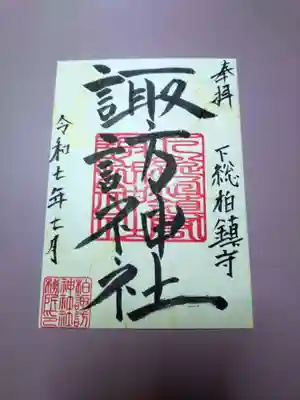 奉拝
下総柏鎮守
諏訪神社
令和七年七月
柏諏訪
神社社